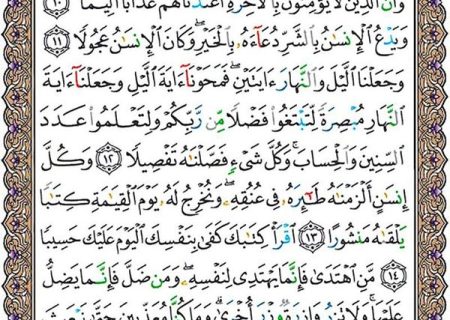 وَأَنَّ ٱلَّذِينَ لَا يُؤْمِنُونَ بِٱلْءَاخِرَةِ أَعْتَدْنَا لَهُمْ عَذَابًا أَلِيمًا ١٠
وَيَدْعُ ٱلْإِنسَٰنُ بِٱلشَّرِّ دُعَآءَهُۥ بِٱلْخَيْرِۖ وَكَانَ ٱلْإِنسَٰنُ عَجُولًا ١١
وَجَعَلْنَا ٱلَّيْلَ وَٱلنَّهَارَ ءَايَتَيْنِۖ فَمَحَوْنَآ ءَايَةَ ٱلَّيْلِ وَجَعَلْنَآ ءَايَةَ
ٱلنَّهَارِ مُبْصِرَةً لِّتَبْتَغُوا۟ فَضْلًا مِّن رَّبِّكُمْ وَلِتَعْلَمُوا۟ عَدَدَ
ٱلسِّنِينَ وَٱلْحِسَابَۚ وَكُلَّ شَىْءٍ فَصَّلْنَٰهُ تَفْصِيلًا ١٢ وَكُلَّ
إِنسَٰنٍ أَلْزَمْنَٰهُ طَٰٓئِرَهُۥ فِى عُنُقِهِۦۖ وَنُخْرِجُ لَهُۥ يَوْمَ ٱلْقِيَٰمَةِ كِتَٰبًا
يَلْقَىٰهُ مَنشُورًا ١٣ ٱقْرَأْ كِتَٰبَكَ كَفَىٰ بِنَفْسِكَ ٱلْيَوْمَ عَلَيْكَ حَسِيبًا
١٤ مَّنِ ٱهْتَدَىٰ فَإِنَّمَا يَهْتَدِى لِنَفْسِهِۦۖ وَمَن ضَلَّ فَإِنَّمَا يَضِلُّ
عَلَيْهَاۚ وَلَا تَزِرُ وَازِرَةٌ وِزْرَ أُخْرَىٰۗ وَمَا كُنَّا مُعَذِّبِينَ حَتَّىٰ نَبْعَثَ